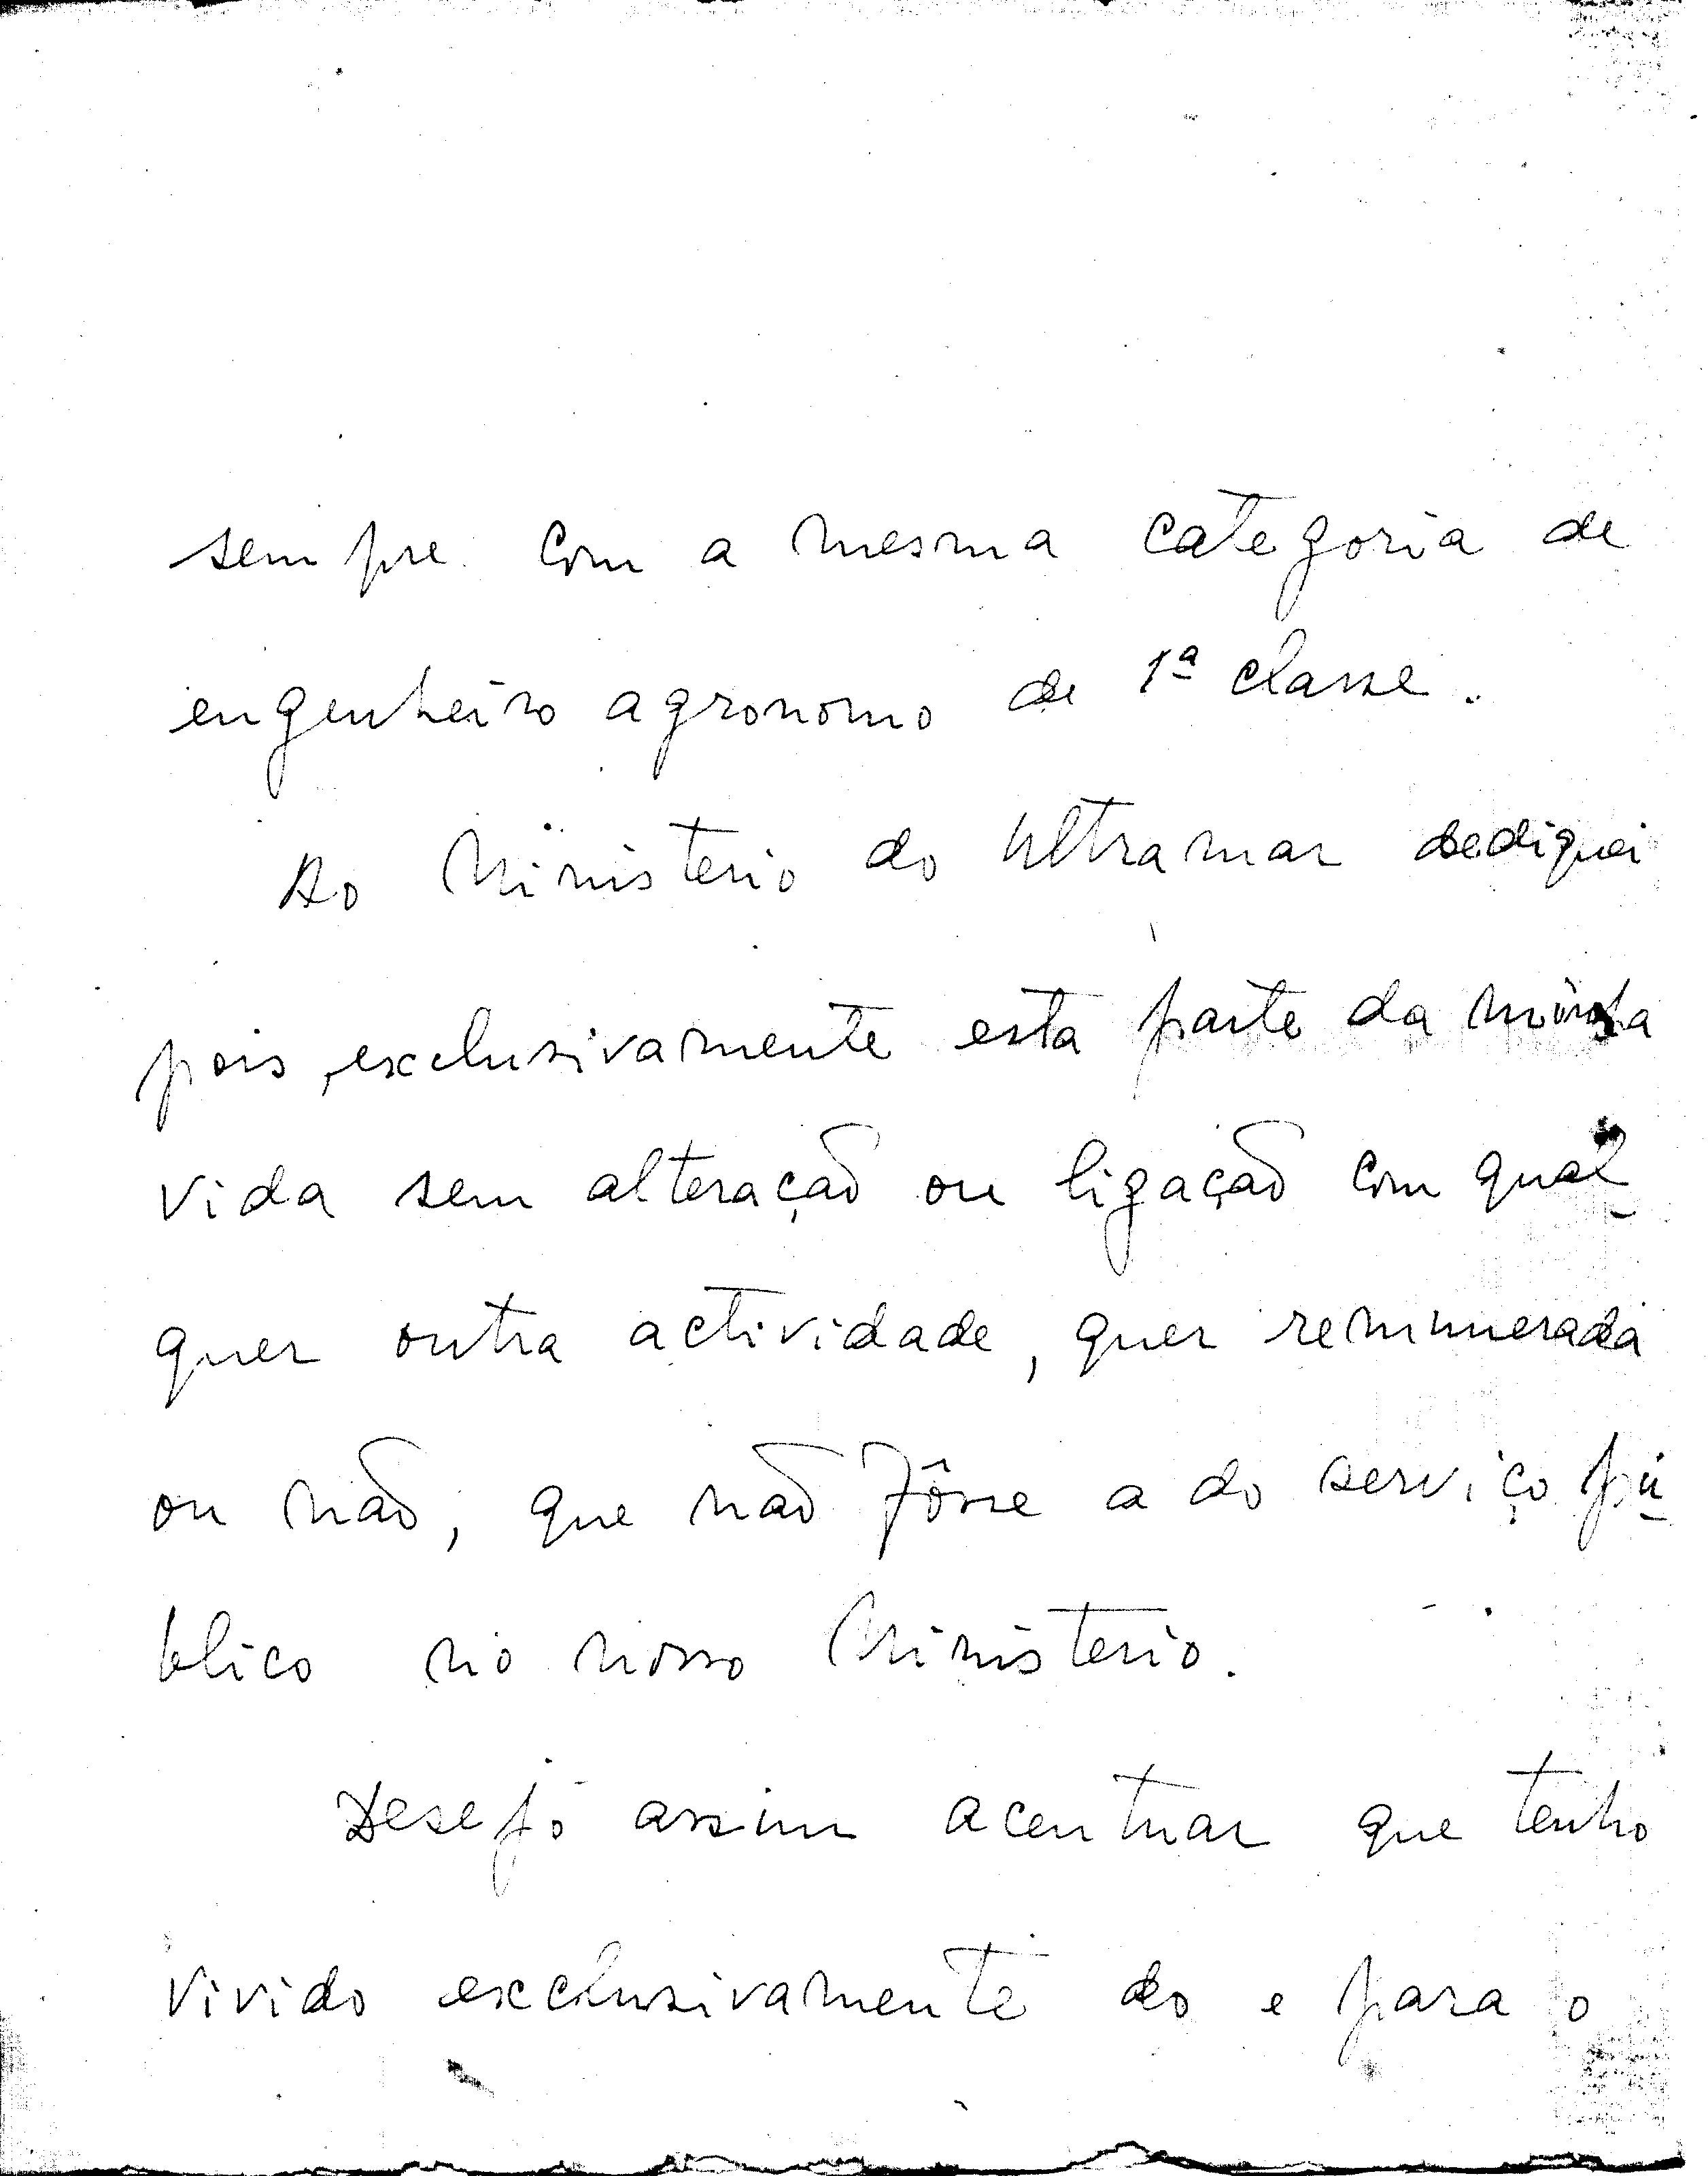 sempre com a mesma categoria de
engenheiro agronomo de 1ª classe.
Ao Ministerio do Ultramar dediquei
pois, exclusivamente esta parte da minha
vida sem alteração ou ligação com qual-
quer outra actividade, quer remunerada
ou não, que não fôsse a do serviço pú-
blico no nosso Ministerio.
Desejo assim acentuar que tenho
vivido exclusivamente do e para o